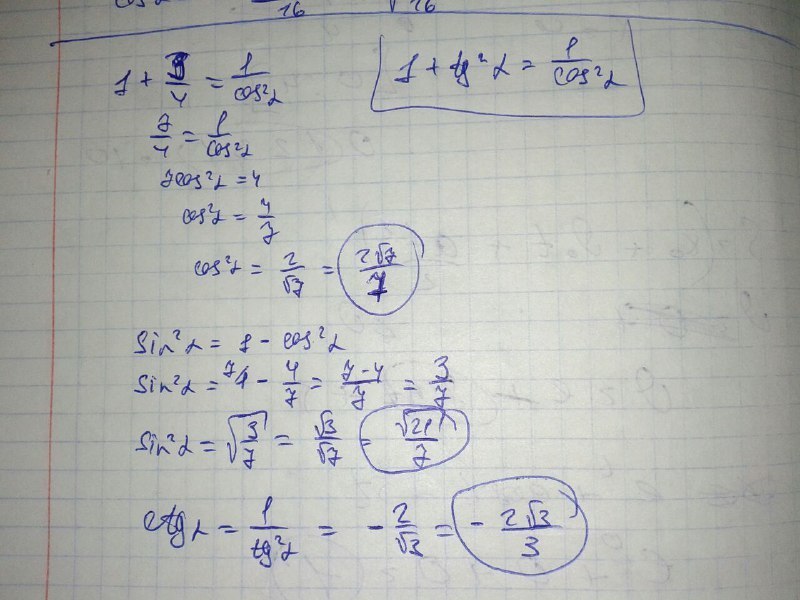 1 + 3/4 = 1/cos²α
1 + tg²α = 1/cos²α
7/4 = 1/cos²α
7cos²α = 4
cos²α = 4/7
cos²α = 2/√7 = 2√7/7
Sin²α = 1 - cos²α
Sin²α = 1 - 4/7 = 7-4/7 = 3/7
Sin²α = √3/7 = √3/√7 = √21/7
ctgα = 1/tg²α = -2/√3 = -2√3/3